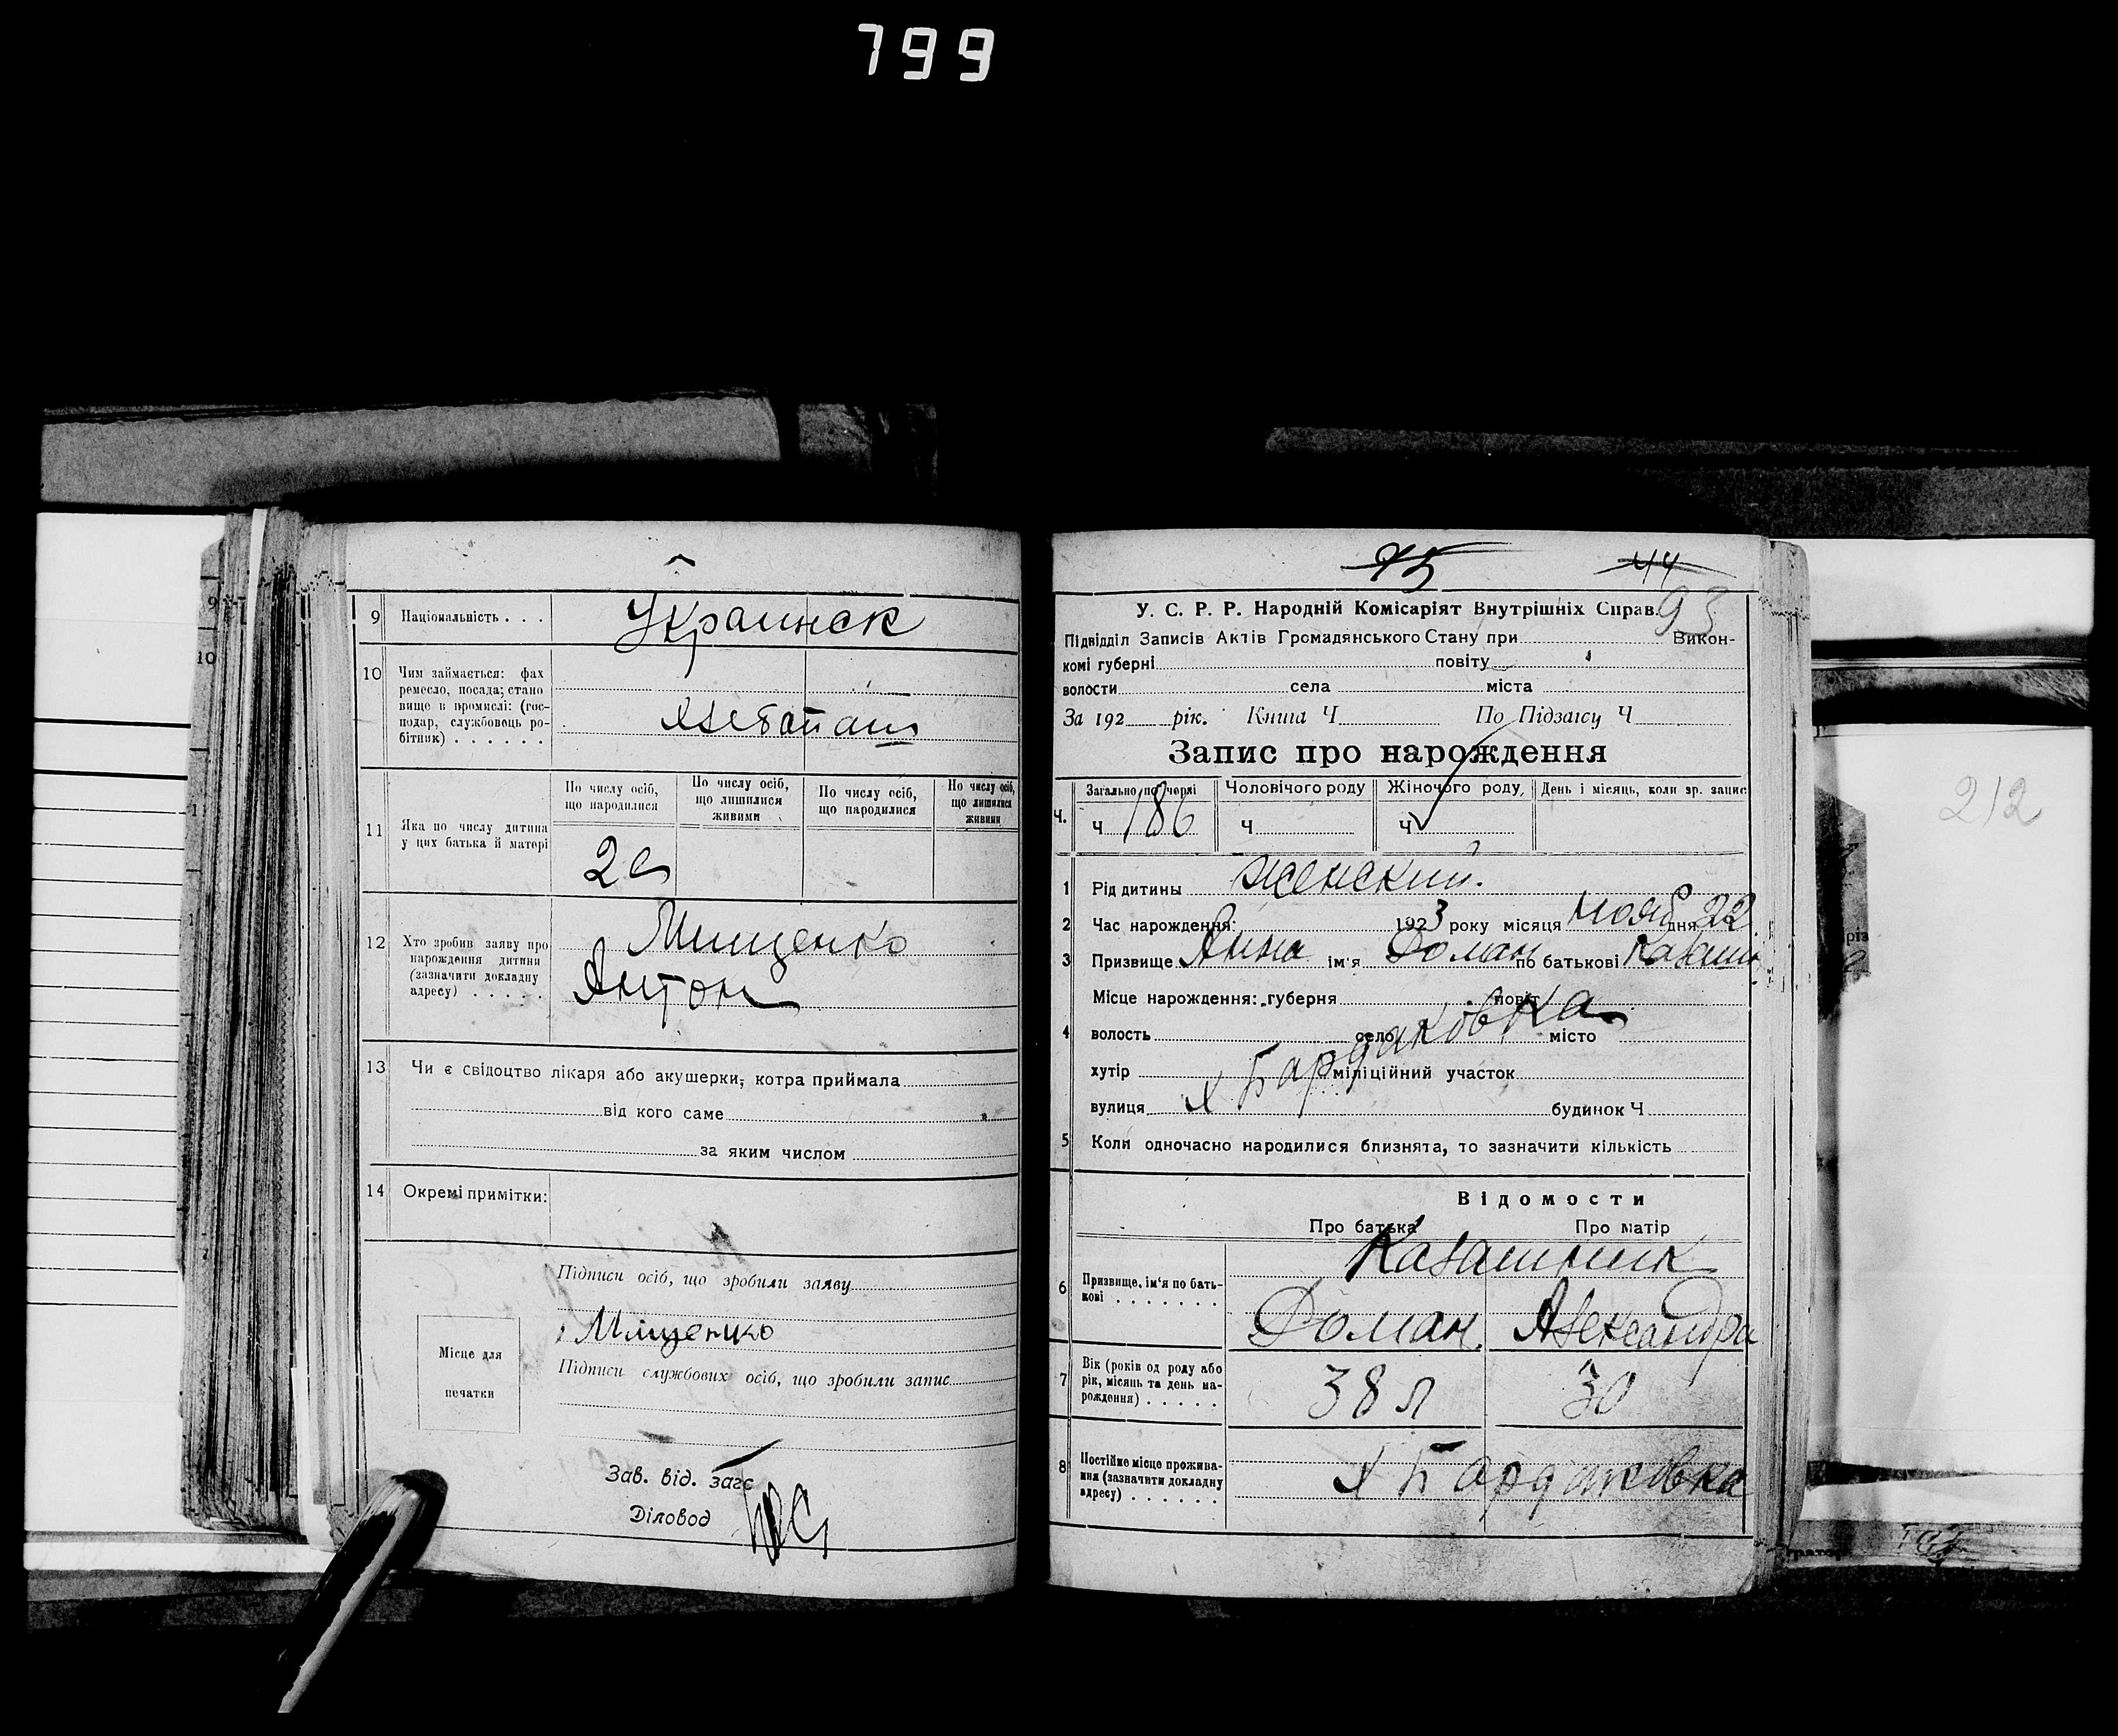 799
9 Національність . . .
Украинск
10 Чим займається: фах
ремесло, посада; стано
вище в промислі: (гос-
подар, службовець ро-
бітник) . . . . . .
хлебопаш
11 Яка по числу дитина
у цих батька й матері
По числу осіб,
що народилися
По числу осіб,
що лишилися
живими
По числу осіб,
що народилися
По числу осіб,
що лишилися
живими
2
12 Хто зробив заяву про
нарождення дитини
(зазначити докладну
адресу) . . . . .
Мищенко
Антон
13 Чи є свідоцтво лікаря або акушерки, котра приймала
від кого саме
за яким числом
14 Окремі примітки:
Підписи осіб, що зробили заяву
Мищенко
Місце для
печатки
Підписи службових осіб, що зробили запис
Зав. від. загс
Діловод
75 44
93
У. С. Р. Р. Народній Комісаріят Внутрішніх Справ.
Підвідділ Записів Актів Громадянського Стану при Викон-
комі губерні повіту
волости села міста
За 192 рік. Книга Ч По Підзагсу Ч
Запис про нарождення
Ч. Загально по черзі Чоловічого роду Жіночого роду, День і місяць, коли зр. запис
Ч 186 Ч Ч
1 Рід дитини женский.
2 Час нарождення: 1923 року місяця нояб дня 22
3 Призвище Анна ім'я Роман по батькові
Місце нарождення: губерня повіт
4 волость село місто
хутір міліційний участок
х Бардаковка
вулиця будинок Ч
5 Коли одночасно народилися близнята, то зазначити кількість
Відомости
Про батька Про матір
6 Призвище, ім'я по бать-
кові . . . . . . .
Роман Александра
7 Вік (років од роду або
рік, місяць та день на-
рождення) . . . . .
38 л 30
8 Постійне місце прожива-
ння (зазначити докладну
адресу) . . . . . .
х Бардаковка
212